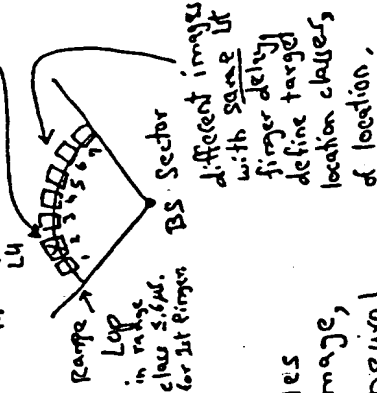 L4
1 2 3 4 5 6 7
Range
Lop
in range
class 5.6µs.
for 1st finger.
BS Sector
different images
with same 1st
finger delay
define target
location classes,
of location.
les
mage,
neural